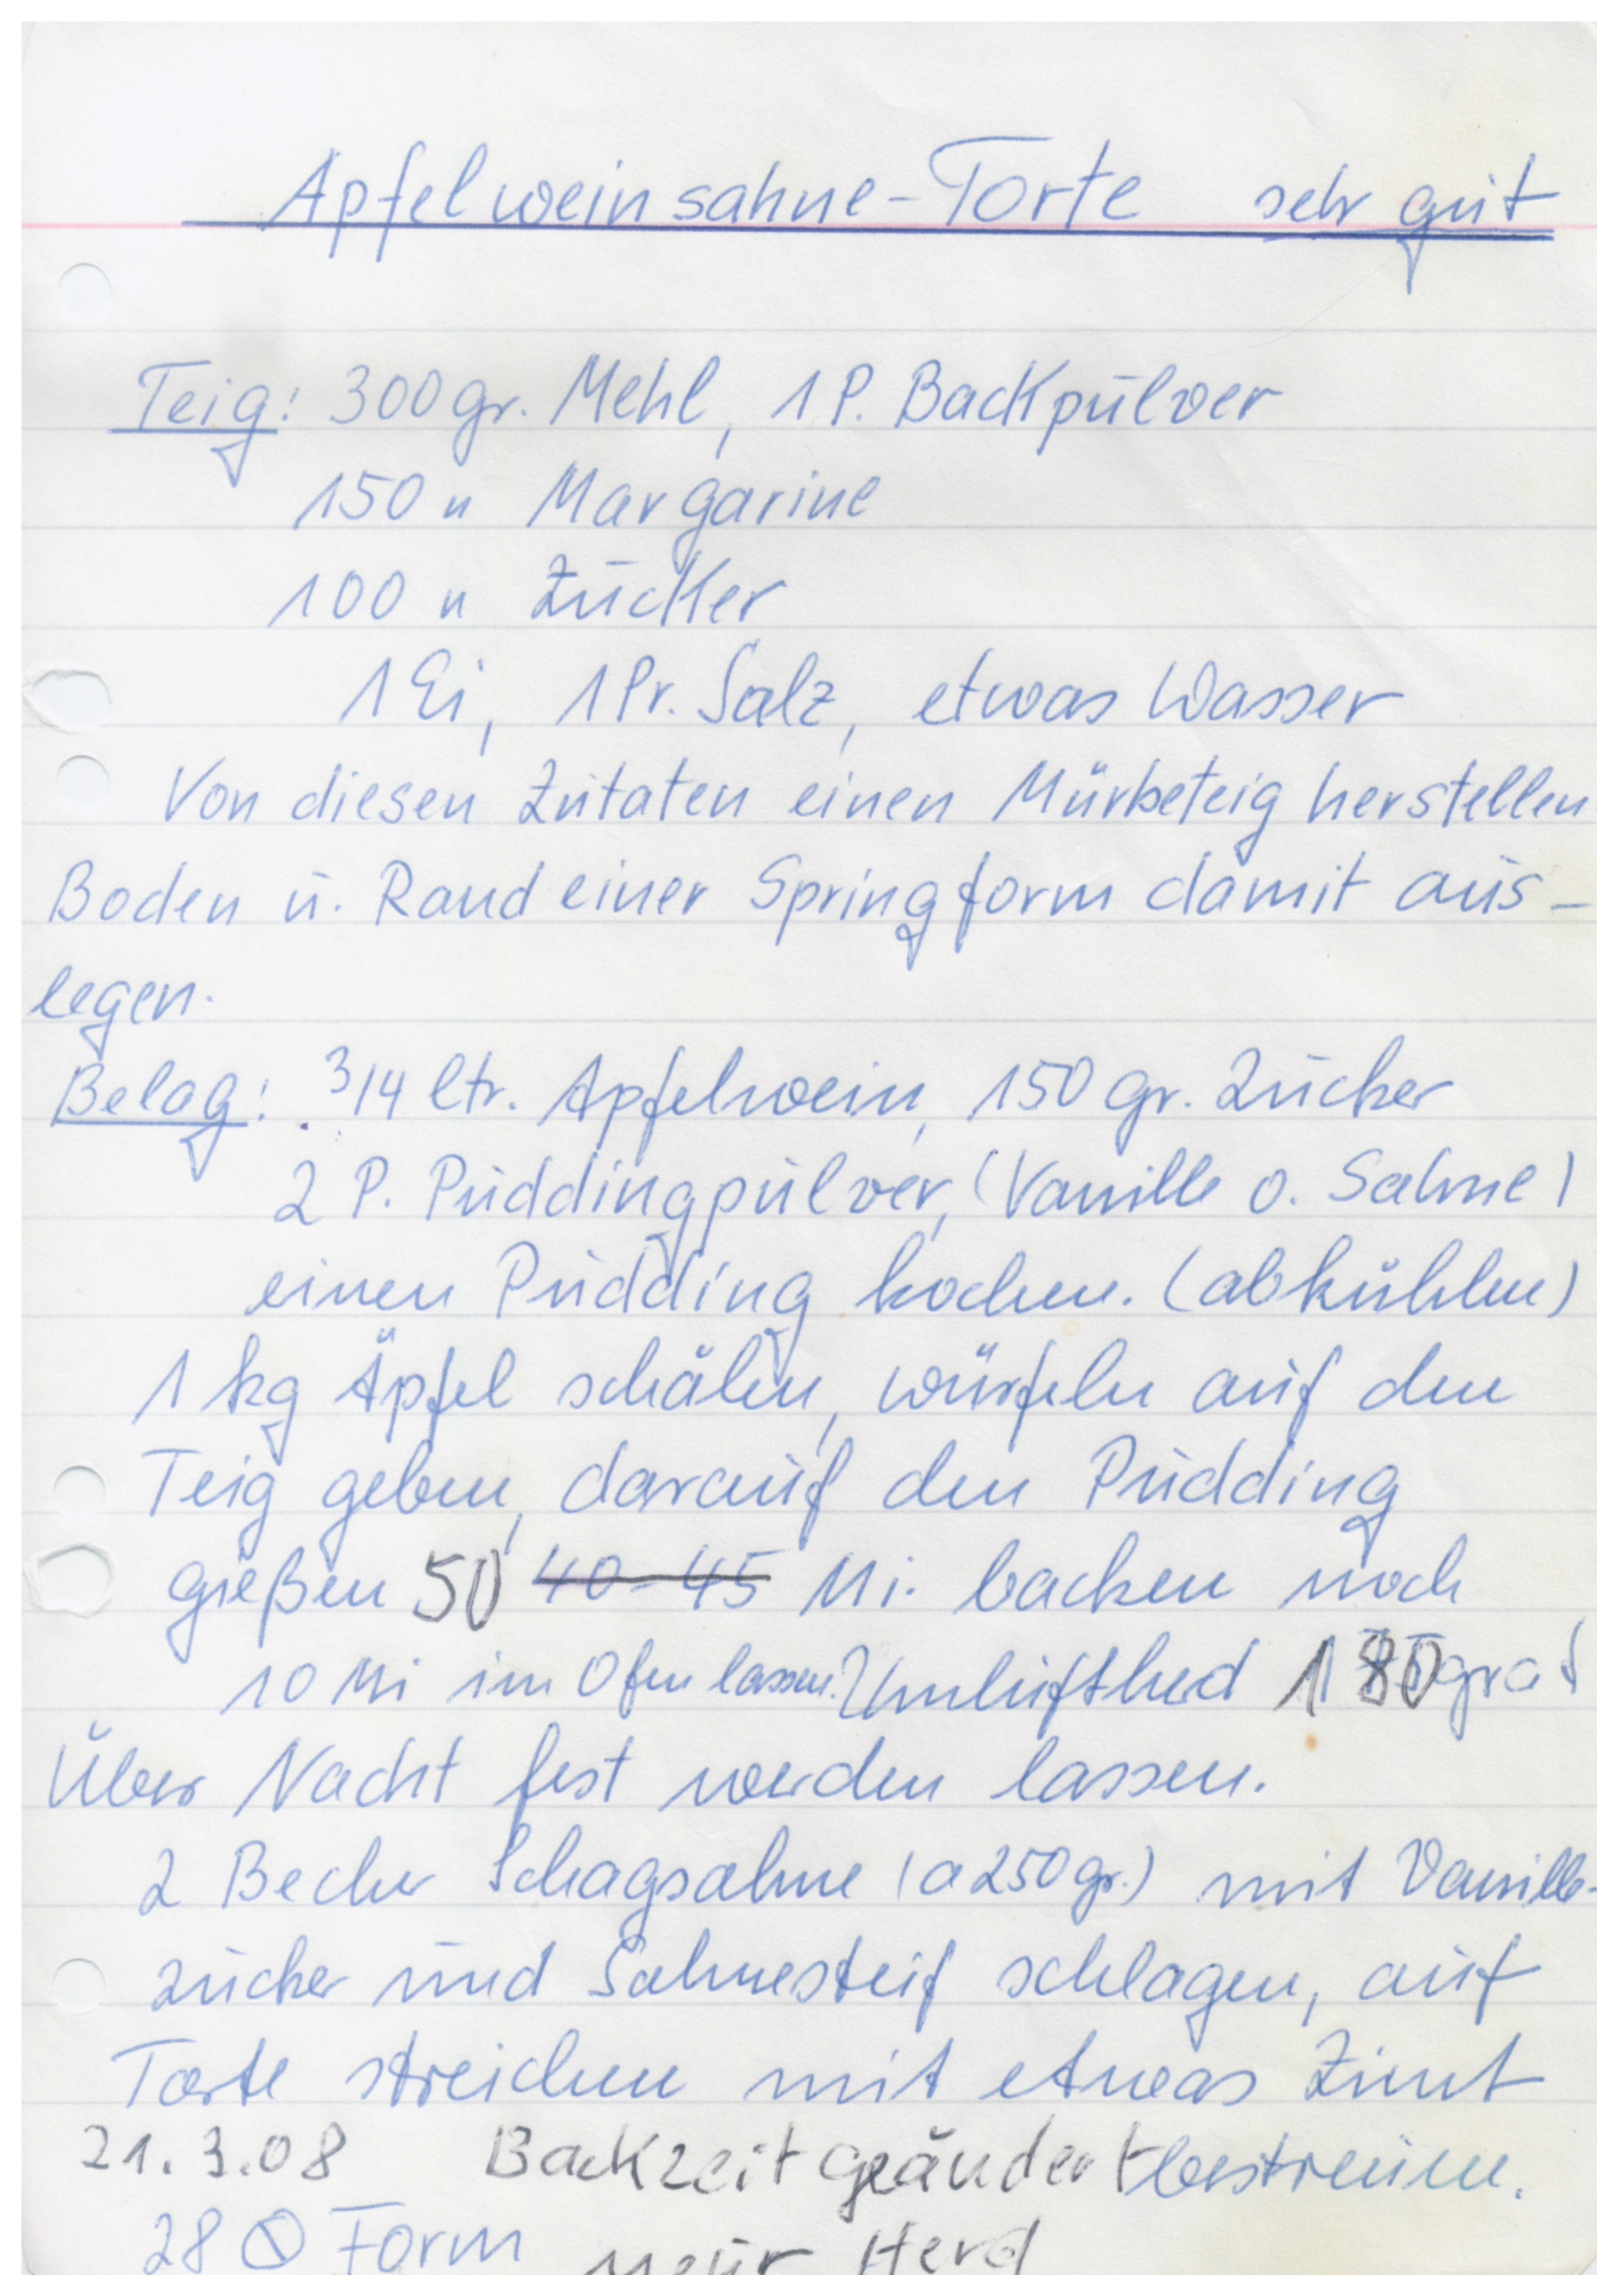 Apfelweinsahne-Torte sehr gut
Teig: 300gr. Mehl, 1 P. Backpulver
150 " Margarine
100 " Zucker
1 Ei, 1 Pr. Salz, etwas Wasser
Von diesen Zutaten einen Mürbeteig herstellen
Boden u. Rand einer Springform damit aus-
legen.
Belag: 3/4 ltr. Apfelwein, 150 gr. Zucker
2 P. Puddingpulver, (Vanille o. Sahne)
einen Pudding kochen. (abkühlen)
1 kg Äpfel schälen, würfeln auf den
Teig geben, darauf den Pudding
gießen 50 40-45 Mi. backen noch
10 Mi im Ofen lassen. Umluftherd 180 grad
Über Nacht fest werden lassen.
2 Becher Schagsahne (a 250gr.) mit Vanille-
zucker und Sahnesteif schlagen, auf
Torte streichen mit etwas Zimt
21.3.08 Backzeit geändert bestreuen.
28 Ø Form neur Herd